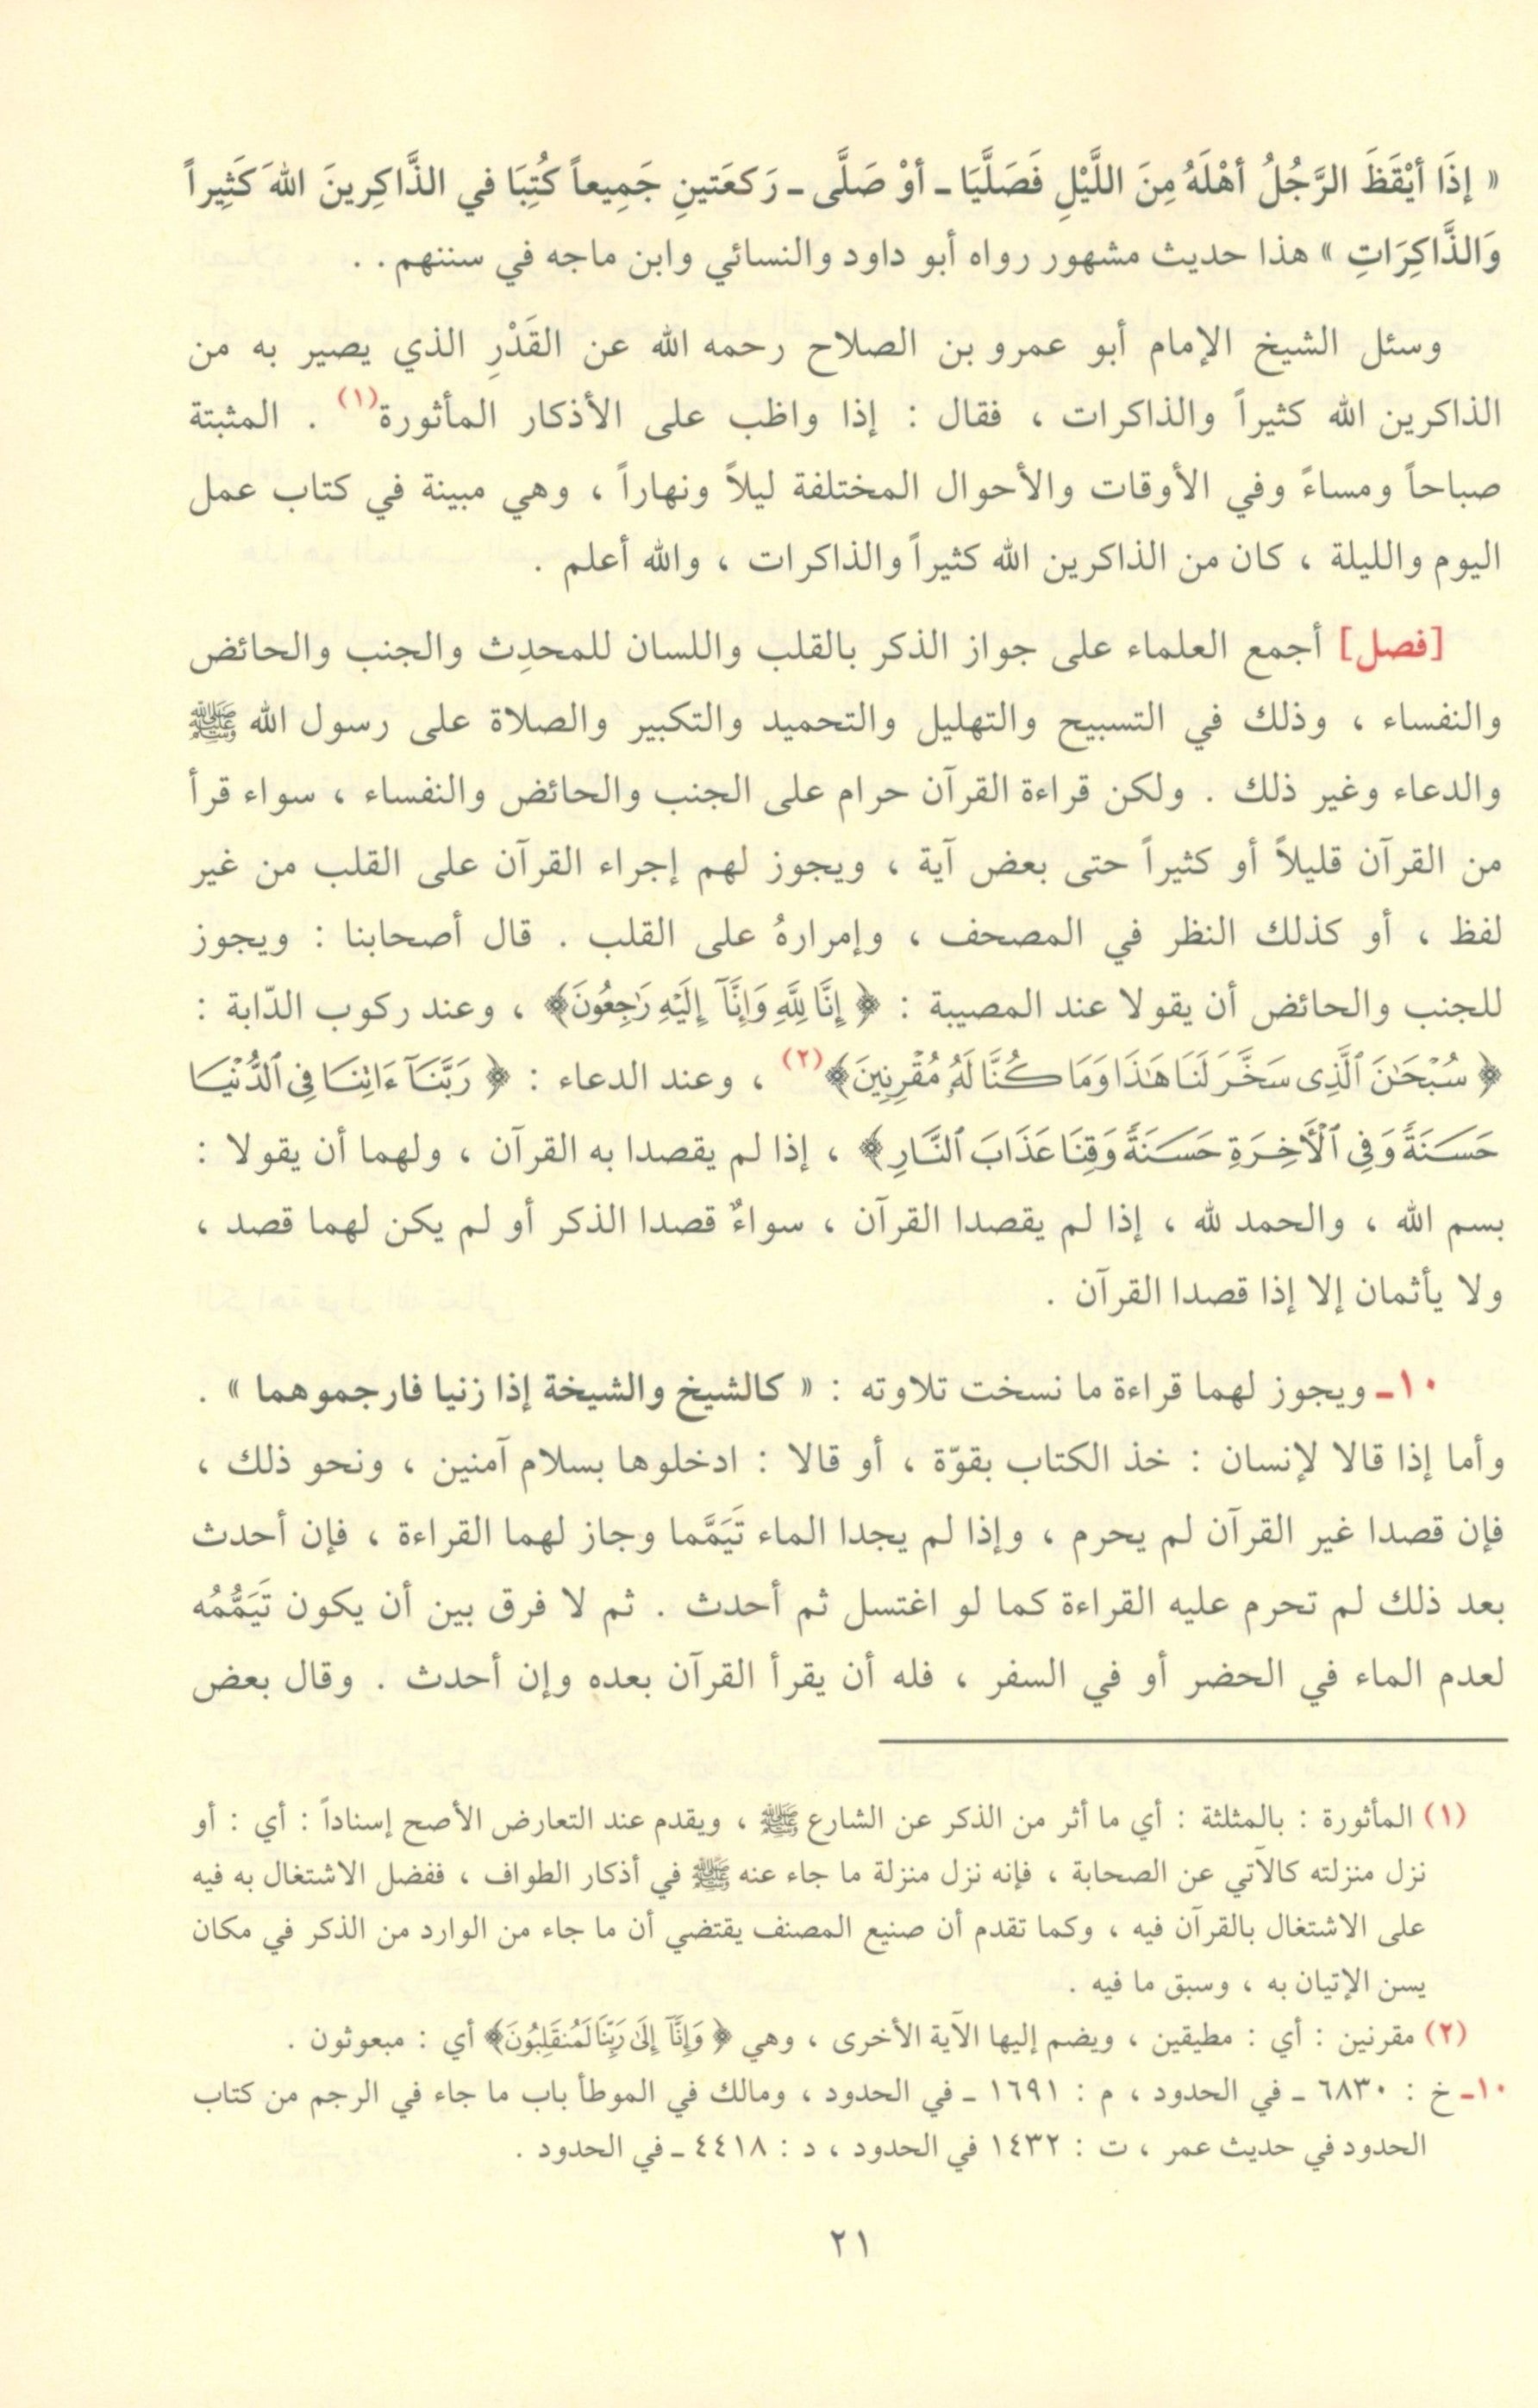 « إذَا أيْقَظَ الرَّجُلُ أهْلَهُ مِنَ اللَّيْلِ فَصَلَّيَا ـ أوْ صَلَّى ـ رَكعَتينِ جَمِيعاً كُتِبَا في الذَّاكِرِينَ اللهَ كَثِيراً
وَالذَّاكِرَاتِ » هذا حديث مشهور رواه أبو داود والنسائي وابن ماجه في سننهم . .
وسئل الشيخ الإمام أبو عمرو بن الصلاح رحمه الله عن القَدْرِ الذي يصير به من
الذاكرين الله كثيراً والذاكرات ، فقال : إذا واظب على الأذكار المأثورة(١) . المثبتة
صباحاً ومساءً وفي الأوقات والأحوال المختلفة ليلاً ونهاراً ، وهي مبينة في كتاب عمل
اليوم والليلة ، كان من الذاكرين الله كثيراً والذاكرات ، والله أعلم .
[فصل] أجمع العلماء على جواز الذكر بالقلب واللسان للمحدِث والجنب والحائض
والنفساء ، وذلك في التسبيح والتهليل والتحميد والتكبير والصلاة على رسول الله ﷺ
والدعاء وغير ذلك . ولكن قراءة القرآن حرام على الجنب والحائض والنفساء ، سواء قرأ
من القرآن قليلاً أو كثيراً حتى بعض آية ، ويجوز لهم إجراء القرآن على القلب من غير
لفظ ، أو كذلك النظر في المصحف ، وإمرارهُ على القلب . قال أصحابنا : ويجوز
للجنب والحائض أن يقولا عند المصيبة : ﴿ إِنَّا لِلَّهِ وَإِنَّآ إِلَيْهِ رَٰجِعُونَ﴾ ، وعند ركوب الدّابة :
﴿ سُبْحَٰنَ ٱلَّذِى سَخَّرَ لَنَا هَٰذَا وَمَا كُنَّا لَهُۥ مُقْرِنِينَ﴾(٢) ، وعند الدعاء : ﴿ رَبَّنَآ ءَاتِنَا فِى ٱلدُّنْيَا
حَسَنَةً وَفِى ٱلْأَخِرَةِ حَسَنَةً وَقِنَا عَذَابَ ٱلنَّارِ ﴾ ، إذا لم يقصدا به القرآن ، ولهما أن يقولا :
بسم الله ، والحمد لله ، إذا لم يقصدا القرآن ، سواءٌ قصدا الذكر أو لم يكن لهما قصد ،
ولا يأثمان إلا إذا قصدا القرآن .
١٠ـ ويجوز لهما قراءة ما نسخت تلاوته : « كالشيخ والشيخة إذا زنيا فارجموهما » .
وأما إذا قالا لإنسان : خذ الكتاب بقوّة ، أو قالا : ادخلوها بسلام آمنين ، ونحو ذلك ،
فإن قصدا غير القرآن لم يحرم ، وإذا لم يجدا الماء تَيَمَّما وجاز لهما القراءة ، فإن أحدث
بعد ذلك لم تحرم عليه القراءة كما لو اغتسل ثم أحدث . ثم لا فرق بين أن يكون تَيَمُّمُه
لعدم الماء في الحضر أو في السفر ، فله أن يقرأ القرآن بعده وإن أحدث . وقال بعض
(١) المأثورة : بالمثلثة : أي ما أثر من الذكر عن الشارع ﷺ ، ويقدم عند التعارض الأصح إسناداً : أي : أو
نزل منزلته كالآتي عن الصحابة ، فإنه نزل منزلة ما جاء عنه ﷺ في أذكار الطواف ، ففضل الاشتغال به فيه
على الاشتغال بالقرآن فيه ، وكما تقدم أن صنيع المصنف يقتضي أن ما جاء من الوارد من الذكر في مكان
يسن الإتيان به ، وسبق ما فيه .
(٢) مقرنين : أي : مطيقين ، ويضم إليها الآية الأخرى ، وهي ﴿ وَإِنَّآ إِلَىٰ رَبِّنَا لَمُنقَلِبُونَ﴾ أي : مبعوثون .
١٠ـ خ : ٦٨٣٠ ـ في الحدود ، م : ١٦٩١ ـ في الحدود ، ومالك في الموطأ باب ما جاء في الرجم من كتاب
الحدود في حديث عمر ، ت : ١٤٣٢ في الحدود ، د : ٤٤١٨ ـ في الحدود .
٢١